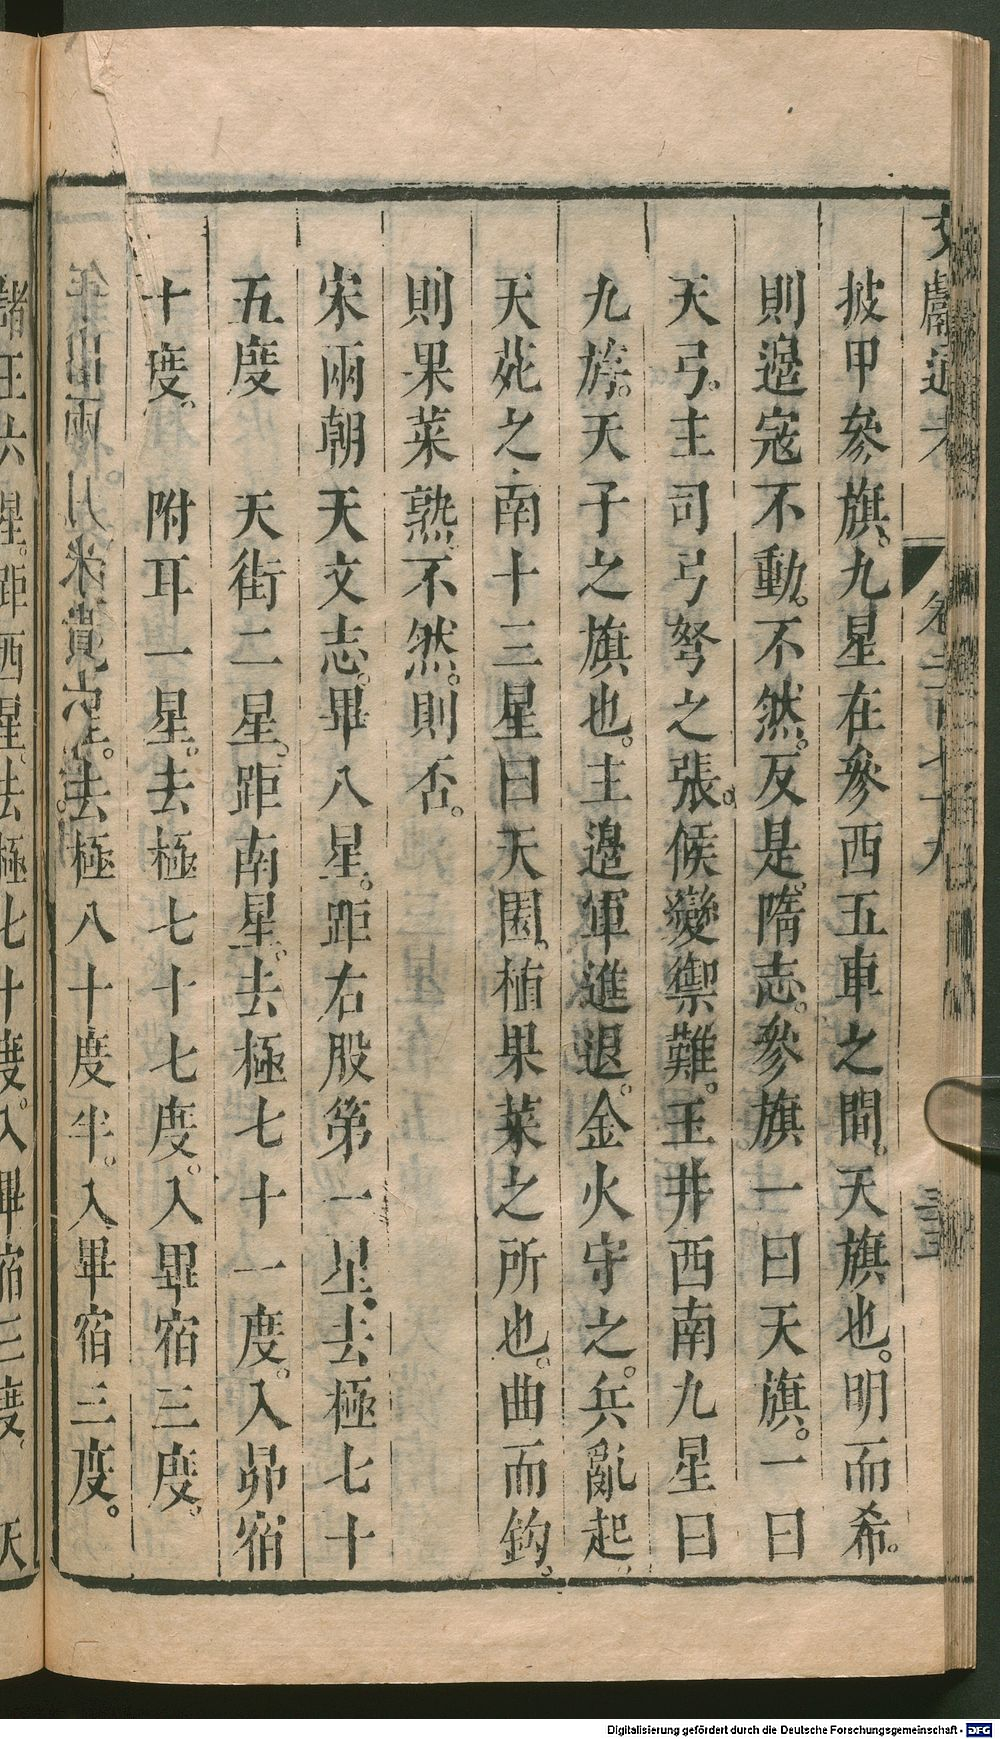 文獻通考 卷二百七十九
披甲參旗。九星在參西五車之間。天旗也。明而希。
則邊寇不動。不然。反是。隋志。參旗一曰天旗。一曰
天弓。主司弓弩之張。候變禦難。玉井西南九星曰
九斿。天子之旗也。主邊軍進退。金火守之。兵亂起。
天苑之南十三星曰天園。植果菜之所也。曲而鈎。
則果菜熟。不然。則否。
宋兩朝天文志。畢八星。距右股第一星。去極七十
五度 天街二星。距南星。去極七十一度。入昴宿
十度。 附耳一星。去極七十七度。入畢宿三度。
去極八十度半。入畢宿三度。
諸王六星。距西星。去極七十度。入畢宿三度。 天
Digitalisierung gefördert durch die Deutsche Forschungsgemeinschaft - DFG